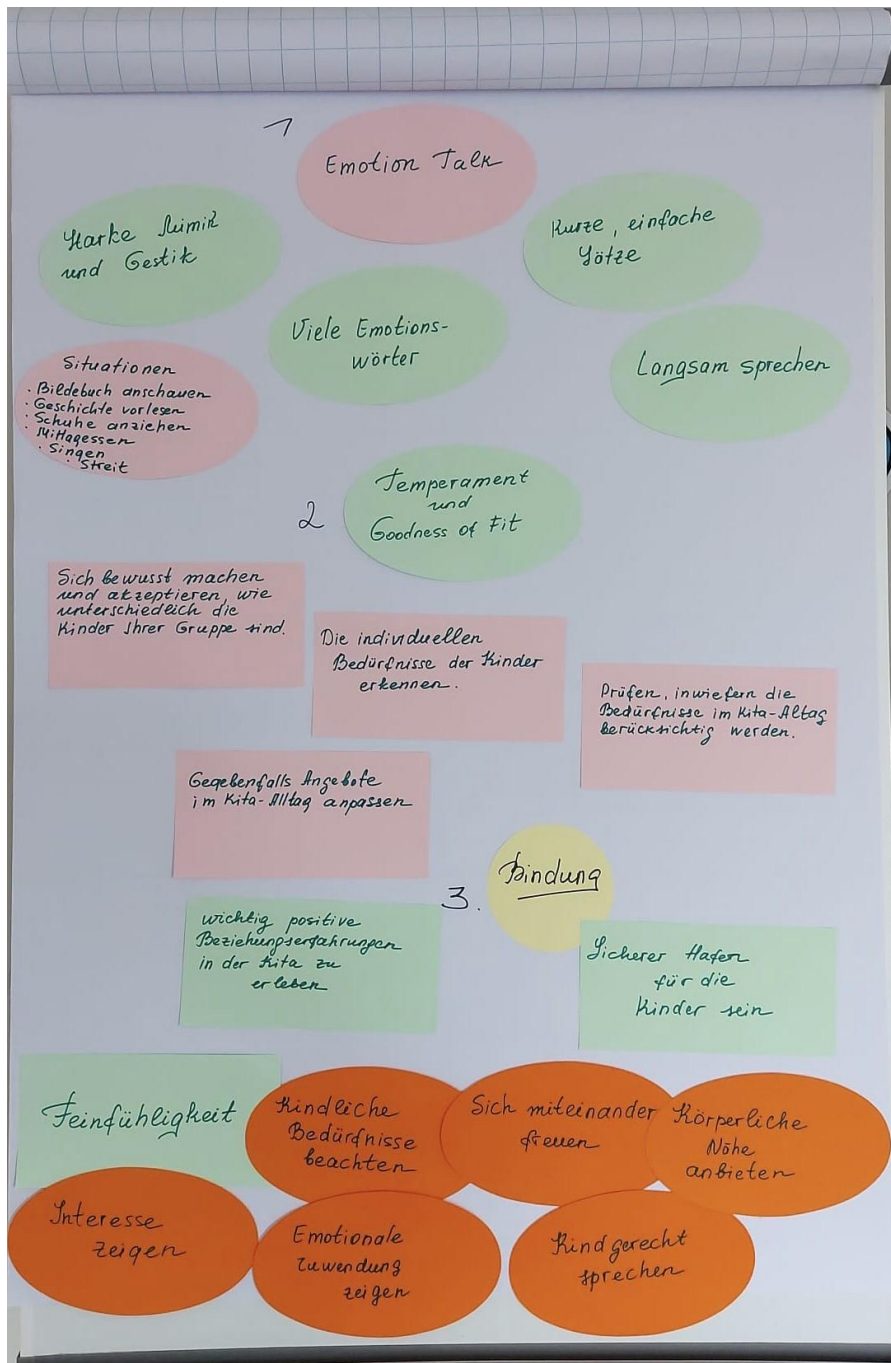 1
Emotion Talk
Starke Mimik
und Gestik
Kurze, einfache
Sätze
Viele Emotions-
wörter
Langsam sprechen
Situationen
· Bildebuch anschauen
· Geschichte vorlesen
· Schuhe anziehen
· Mittagessen
· Singen
· Streit
2
Temperament
und
Goodness of Fit
Sich bewusst machen
und akzeptieren, wie
unterschiedlich die
Kinder Ihrer Gruppe sind.
Die individuellen
Bedürfnisse der Kinder
erkennen.
Prüfen, inwiefern die
Bedürfnisse im Kita-Altag
berücksichtig werden.
Gegebenfalls Angebote
im Kita-Alltag anpassen
3.
Bindung
wichtig positive
Beziehungserfahrungen
in der Kita zu
erleben
Sicherer Hafen
für die
Kinder sein
Feinfühligkeit
Kindliche
Bedürfnisse
beachten
Sich miteinander
freuen
Körperliche
Nähe
anbieten
Interesse
zeigen
Emotionale
Zuwendung
zeigen
Kind gerecht
sprechen